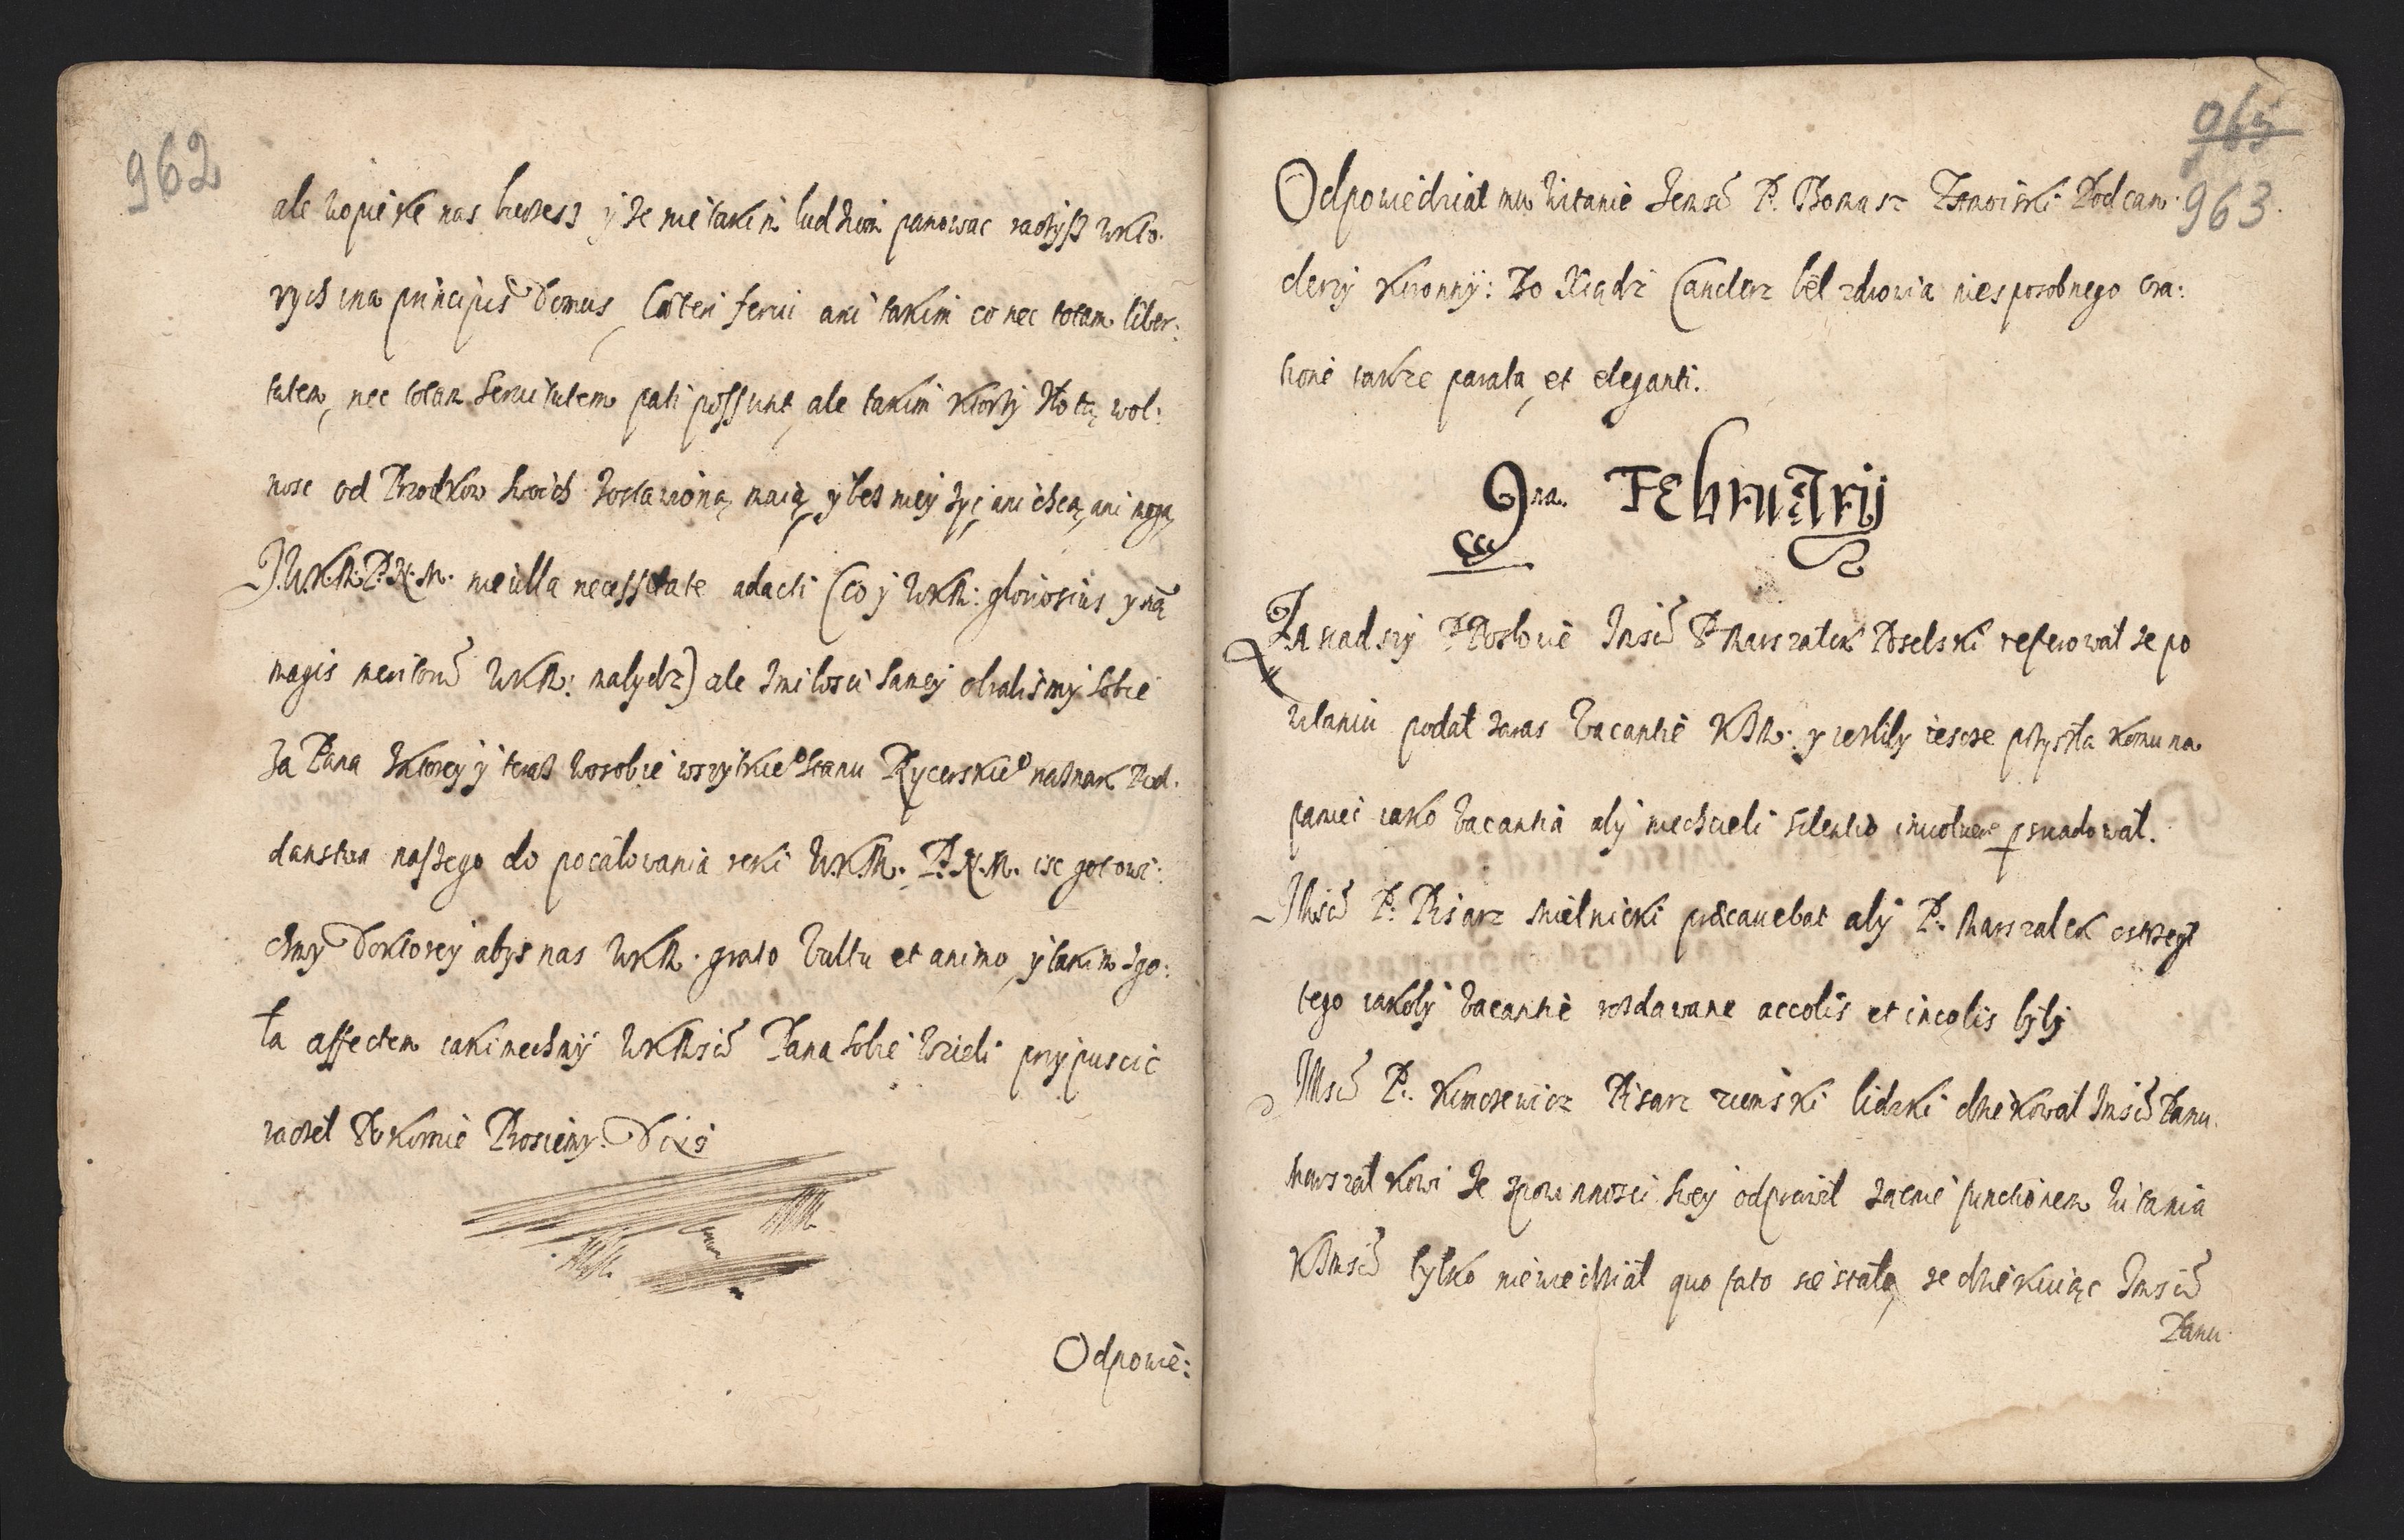 962
ale wopieke nas bierzesz y że nie takim ludziom panować raczysz wkto:
rych una principis Domus, Cæteri serui ani takim co nec totam liber:
tatem, nec totam seruitutem pati possunt, ale takim ktorzy Złotą wol:
nosc od Przodkow swoich zostawioną maią, y bez niey żyć ani chcą, ani mogą
J.W.K.M. P.N.M. nie ulla necessitate adacti (co y WKM: gloriosius y na
magis meritorũ WKM: należy) ale zmiłosci samey obralismy sobie
Za Pana zktorey y teraz wosobie wszytkieo Stanu Rycerskieo naznak Pod:
danstwa naszego do pocałowania reki W.K.M. P.N.M. isc gotowi:
chmy Doktorey abys nas WKM. grato Vultu et animo, y takim zgo:
ła affectem iakimechmy WKMsci Pana sobie wzieli przypuscic
raczeł Pokornie Prosiemy. Dixi
Odpowie:
965
963.
Odpowiedział mu Witanie Jemsci P. Thomasz Zamoiski Podcan:
clerzy Koronny: Bo Xiądz Canclerz beł zdrowia niesposobnego ora:
tione także parata, et eleganti.
9na. Februarij
Zasiadszy PP Posłowie Jmsci P Marszałek Poselski referował że po
witaniu podał zaraz Vacantie KJM: y ieżliby iescze przyszła komu na
pamiec iako Vacantia aby niechcieli silentio inuoluere persuadował.
JMsci P. Pisarz Mielnicki præcauebat aby P. Marszałek ostrzegł
tego iakoby Vacantie rozdawane accolis et incolis były
JMsci P. Kimczewicz Pisarz ziemski lidzki dziekował Jmsci Panu
Marszałkowi że zpowinnosci swey odprawił zacnie functionem witania
KJMsci tylko niewiedział quo fato sie stało, że dziekuiąc Jmsci
Panu